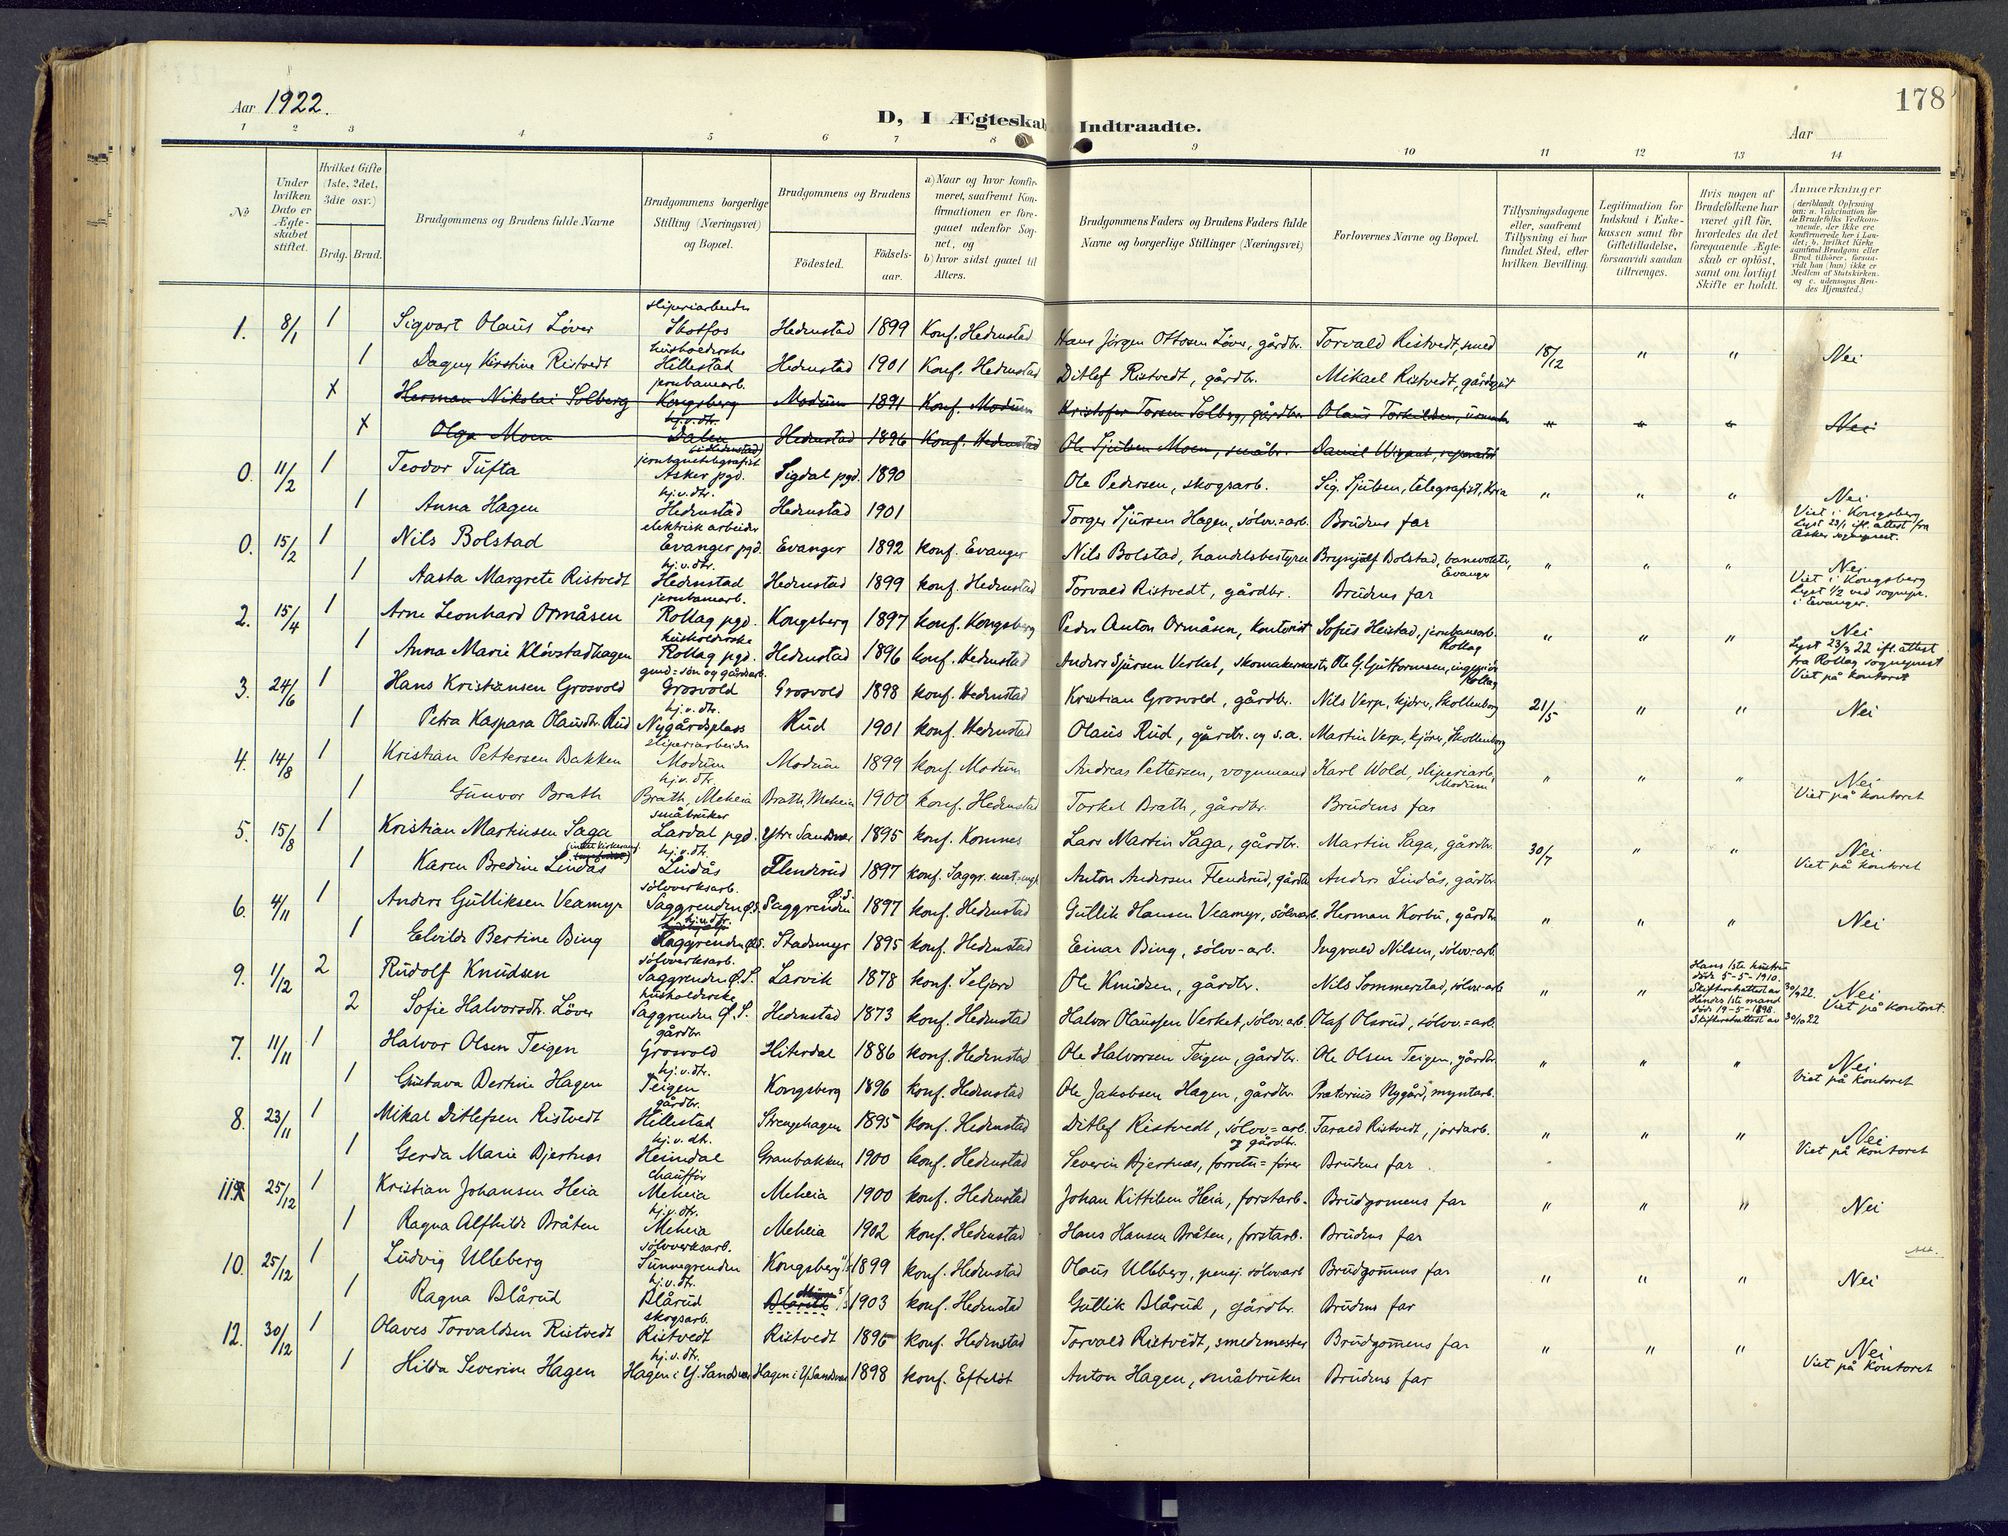 178
Aar 1922.
D, I Ægteskab Indtraadte.
Aar
1 2 3 4 5 6 7 8 9 10 11 12 13 14
No
Under hvilken Dato er Ægteskabet stiftet.
Hvilket Gifte (1ste, 2det, 3die osv.)
Brdg. Brud.
Brudgommens og Brudens fulde Navne
Brudgommens borgerlige Stilling (Næringsvei) og Bopæl.
Brudgommens og Brudens
Fødested. Fødselsaar.
a) Naar og hvor konfirmeret, saafremt Konfirmationen er foregaaet udenfor Sognet, og b) hvor sidst gaaet til Alters.
Brudgommens Faders og Brudens Faders fulde Navne og borgerlige Stillinger (Næringsvei)
Forlovernes Navne og Bopæl.
Tillysningsdagene eller, saafremt Tillysning ei har fundet Sted, efter hvilken Bevilling.
Legitimation for Indskud i Enkekassen samt for Giftetilladelse, forsaavidt saadan tiltrænges.
Hvis nogen af Brudefolkene har været gift før, hvorledes da det foregaaende Ægteskab er opløst, samt om lovligt Skifte er holdt.
Anmærkninger (deriblandt Oplysning om: a. Vakcination for de Brudefolks Vedkommende, der ikke ere konfirmerede her i Landet; b. hvilket Kirkesamfund Brudgom eller Brud tilhører, forsaavidt han (hun) ikke er Medlem af Statskirken, og c. udensogns Brudes Hjemsted.)
1. 8/1 1 Sigvart Olaus Løver sliperiarbeider Skotfos Hedenstad 1899 Konf. Hedenstad Hans Jørgen Ottosen Løver, gårdbr. Torvald Ristvedt, smed 18/12 " " Nei
1 Dagny Kirstine Ristvedt husholderske Hillestad Hedenstad 1901 Konf. Hedenstad Ditlef Ristvedt, gårdbr. Mikael Ristvedt, gårdgut
x Herman Nikolai Solberg jernbanearb. Kongsberg Modum 1891 Konf. Modum Kristofer Torsen Solberg, gårdbr. Olaus Torkildsen, " " " Nei
x Olga Moen hj.v.dtr. Dalen (i Hedenstad) Hedenstad 1896 Konf. Hedenstad Ole Sjulsen Moen, småbr. Daniel Wigant, reperatør
0. 11/2 1 Teodor Tufta jernbanetelegrafist Asker pgd. Sigdal pgd. 1890 Ole Pedersen, skogsarb. Sig. Sjulsen, telegrafist, Kria " " " Nei
1 Anna Hagen hj.v.dtr. Hedenstad Hedenstad 1901 Torger Sjursen Hagen, sølvv=arb. Brudens far Viet i Kongsberg Lyst 23/1 ifl. attest fra Asker sogneprest.
0. 15/2 1 Nils Bolstad elektrisk arbeider Evanger pgd. Evanger 1892 konf. Evanger Nils Bolstad, handelsbestyrer Brynjulf Bolstad, banevokter, Evanger " " " Nei
1 Aasta Margrete Ristvedt hj.v.dtr. Hedenstad Hedenstad 1899 konf. Hedenstad Torvald Ristvedt, gårdbr. Brudens far Viet i Kongsberg Lyst 1/2 ved sognepr. i Evanger.
2. 15/4 1 Arne Leonhard Ormåsen jernbanearb. Rollag pgd. Kongsberg 1897 konf. Kongsberg Peder Anton Ormåsen, kontorist Sofus Heistad, jernbanearb. Rollag " " " Nei
1 Anna Marie Kløvstadhagen husholderske Rollag pgd. Hedenstad 1896 konf. Hedenstad Anders Sjursen Verket, skomakermester Ole G. Guttormsen, ingeniør Rollag Lyst 23/3 22 ifl. attest fra Rollag sogneprest Viet på kontoret
3. 24/6 1 Hans Kristiansen Grosvold grd=søn og gårdsarb. Grosvold Grosvold 1898 konf. Hedenstad Kristian Grosvold, gårdbr. Nils Verp, kjører, Skollenborg 21/5 " " Nei
1 Petra Kaspara Olausdtr. Rud hj.v.dtr. Nygårdsplass Rud 1901 konf. Hedenstad Olaus Rud, gårdbr. og s.a. Martin Verp, kjører, Skollenborg
4. 14/8 1 Kristian Pettersen Bakken sliperiarbeider Modum Modum 1899 konf. Modum Andreas Pettersen, vognmand Karl Wold, sliperiarb., Modum " " " Nei
1 Gunvor Brath hj.v.dtr. Brath, Meheia Brath, Meheia 1900 konf. Hedenstad Torkel Brath, gårdbr. Brudens far Viet på kontoret
5. 15/8 1 Kristian Martinsen Saga småbruker Lardal pgd. Ytre Sandsvær 1895 konf. Komnes Lars Martin Saga, gårdbr. Martin Saga, gårdbr. 30/7 " " Nei
1 Karen Bredine Lindås hj.v.dtr. Lindås Flenderud 1897 konf. Saggr. Anton Andersen Flendrud, gårdbr Anders Lindås, gårdbr. Viet på kontoret
6. 4/11 1 Anders Gulliksen Veamyr sølvverksarb. Saggrenden Ø.S. Saggrenden Ø.S. 1897 konf. Hedenstad Gullik Hansen Veamyr, sølvarb. Herman Korbu, gårdbr " " " Nei
1 Elvilde Bertine Bing hj.v.dtr. Saggrenden Ø.S. Stadsmyr 1895 konf. Hedenstad Einar Bing, sølvv-arb. Ingvald Nilsen, sølvv-arb
9. 1/12 2 Rudolf Knudsen sølvverksarb. Saggrenden Ø.S. Larvik 1878 konf. Seljord Ole Knudsen, gårdbr. Nils Sommerstad, sølvv-arb " " Hans 1ste hustru døde 5-5-1910. Skifterettattest av 30/9 22. Nei
2 Sofie Halvorsdtr. Løver husholderske Saggrenden Ø.S. Hedenstad 1873 konf. Hedenstad Halvor Olaussen Verket, sølvv.arb. Olaf Olsrud, sølvv.=arb. Hendes 1ste mand døde 19-5-1898. Skifterettattest av 30/10 22 Viet på kontoret.
7. 11/11 1 Halvor Olsen Teigen gårdbr. Grosvold Hiterdal 1886 konf. Hedenstad Ole Halvorsen Teigen, gårdbr. Ole Olsen Teigen, gårdbr " " " Nei
1 Gustava Bertine Hagen hj.v.dtr. Teigen Kongsberg 1896 konf. Hedenstad Ole Jakobsen Hagen, gårdbr Prætorius Nygård, myntarb. Viet på kontoret
8. 23/11 1 Mikal Ditlefsen Ristvedt gårdbr. Hillestad Strengehagen 1895 konf. Hedenstad Ditlef Ristvedt, sølvv=arb. og gårdbr. Tarald Ristvedt, jordarb. " " " Nei
1 Gerda Marie Bjertnes hj.v.dt. Heimdal Granbakken 1900 konf. Hedenstad Severin Bjertnæs, forretn=fører Brudens far. Viet på kontoret
11 25/12 1 Kristian Johansen Heia chauffør Meheia Meheia 1900 konf. Hedenstad Johan Kittilsen Heia, forstarb. Brudgomens far " " " Nei
1 Ragna Alfhilde Bråten hj.v.dtr. Meheia Meheia 1902 konf. Hedenstad Hans Hansen Bråten, forstarb. Brudens far
10. 25/12 1 Ludvig Ulleberg sølvverksarb. Sunnegrenden Kongsberg 1899 konf. Hedenstad Olaus Ulleberg, pensj. sølvarb Brudgomens far " " " Nei
1 Ragna Blårud hj.v.dtr. Blårud Blårud 1903 konf. Hedenstad Gullik Blårud, gårdbr. Brudens far
12. 30/12 1 Olaves Torvaldsen Ristvedt skogsarb. Ristvedt Ristvedt 1895 konf. Hedenstad Torvald Ristvedt, smedmester Brudgomens far " " " Nei
1 Hilda Severine Hagen hj.v.dtr. Hagen i Y. Sandsvær Hagen i Y. Sandsvær 1898 konf. Efteløt Anton Hagen, småbruker Brudens far Viet på kontoret